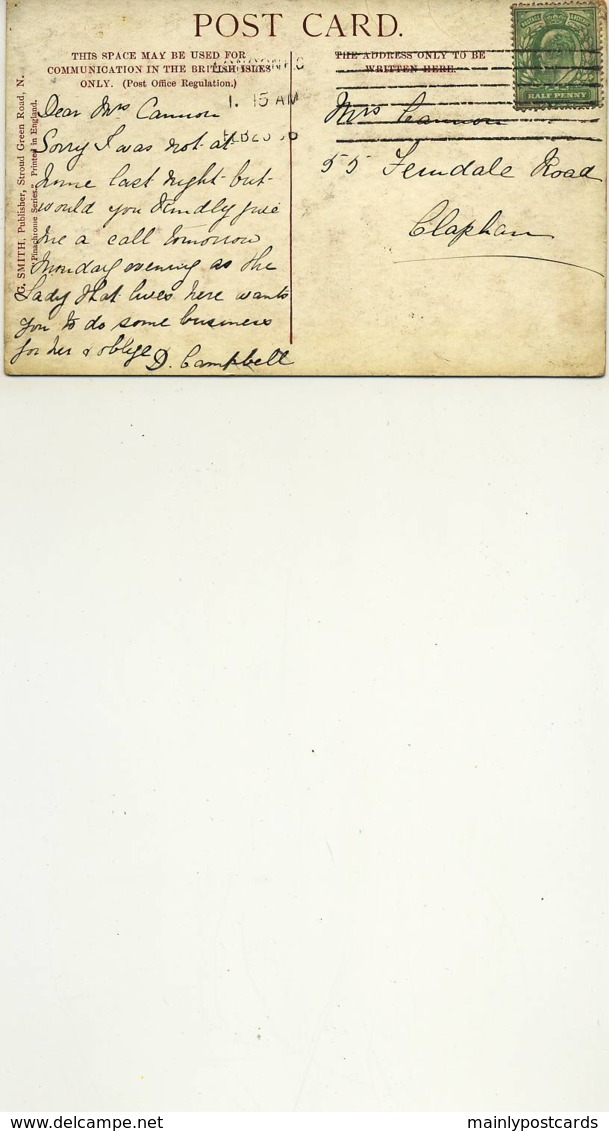 POST CARD.
THIS SPACE MAY BE USED FOR
COMMUNICATION IN THE BRITISH ISLES
ONLY. (Post Office Regulation.)
THE ADDRESS ONLY TO BE
WRITTEN HERE.
G. SMITH, Publisher, Stroud Green Road, N.
"Pinachrome Series." Printed in England.
1. 15 AM
HALF PENNY
Dear Mrs Cannon
Sorry I was not at
home last night but
would you kindly give
me a call tomorrow
Monday evening as the
Lady that lives here wants
you to do some business
for her & oblige
D. Campbell
Mrs Cannon
55 Ferndale Road
Clapham
delcampe.net
mainlypostcards